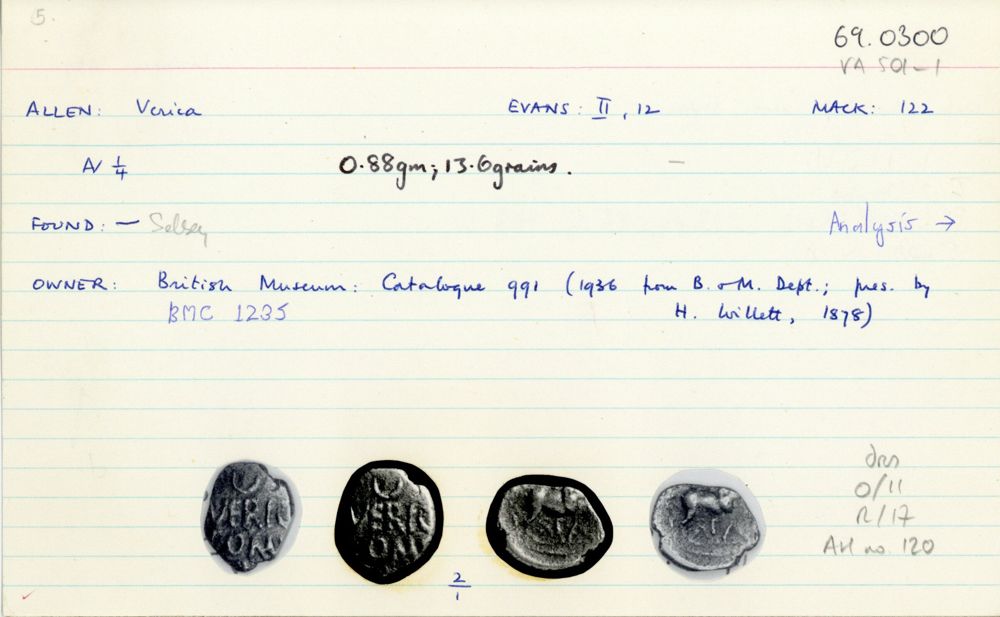 5.
69.0300
VA 501-1
ALLEN: Verica EVANS: II, 12 MACK: 122
A/ 1/4 0.88gm; 13.6grains. —
FOUND: — Selsey Analysis →
OWNER: British Museum: Catalogue 991 (1936 from B. & M. Dept.; pres. by
BMC 1235 H. Willett, 1878)
VERI
COM
2/1
O/11
R/17
no. 120